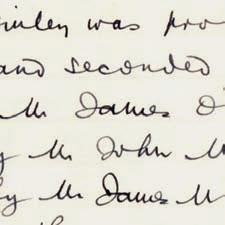 inley was pro
and seconded
M. James O
y M. John M
by M. James M